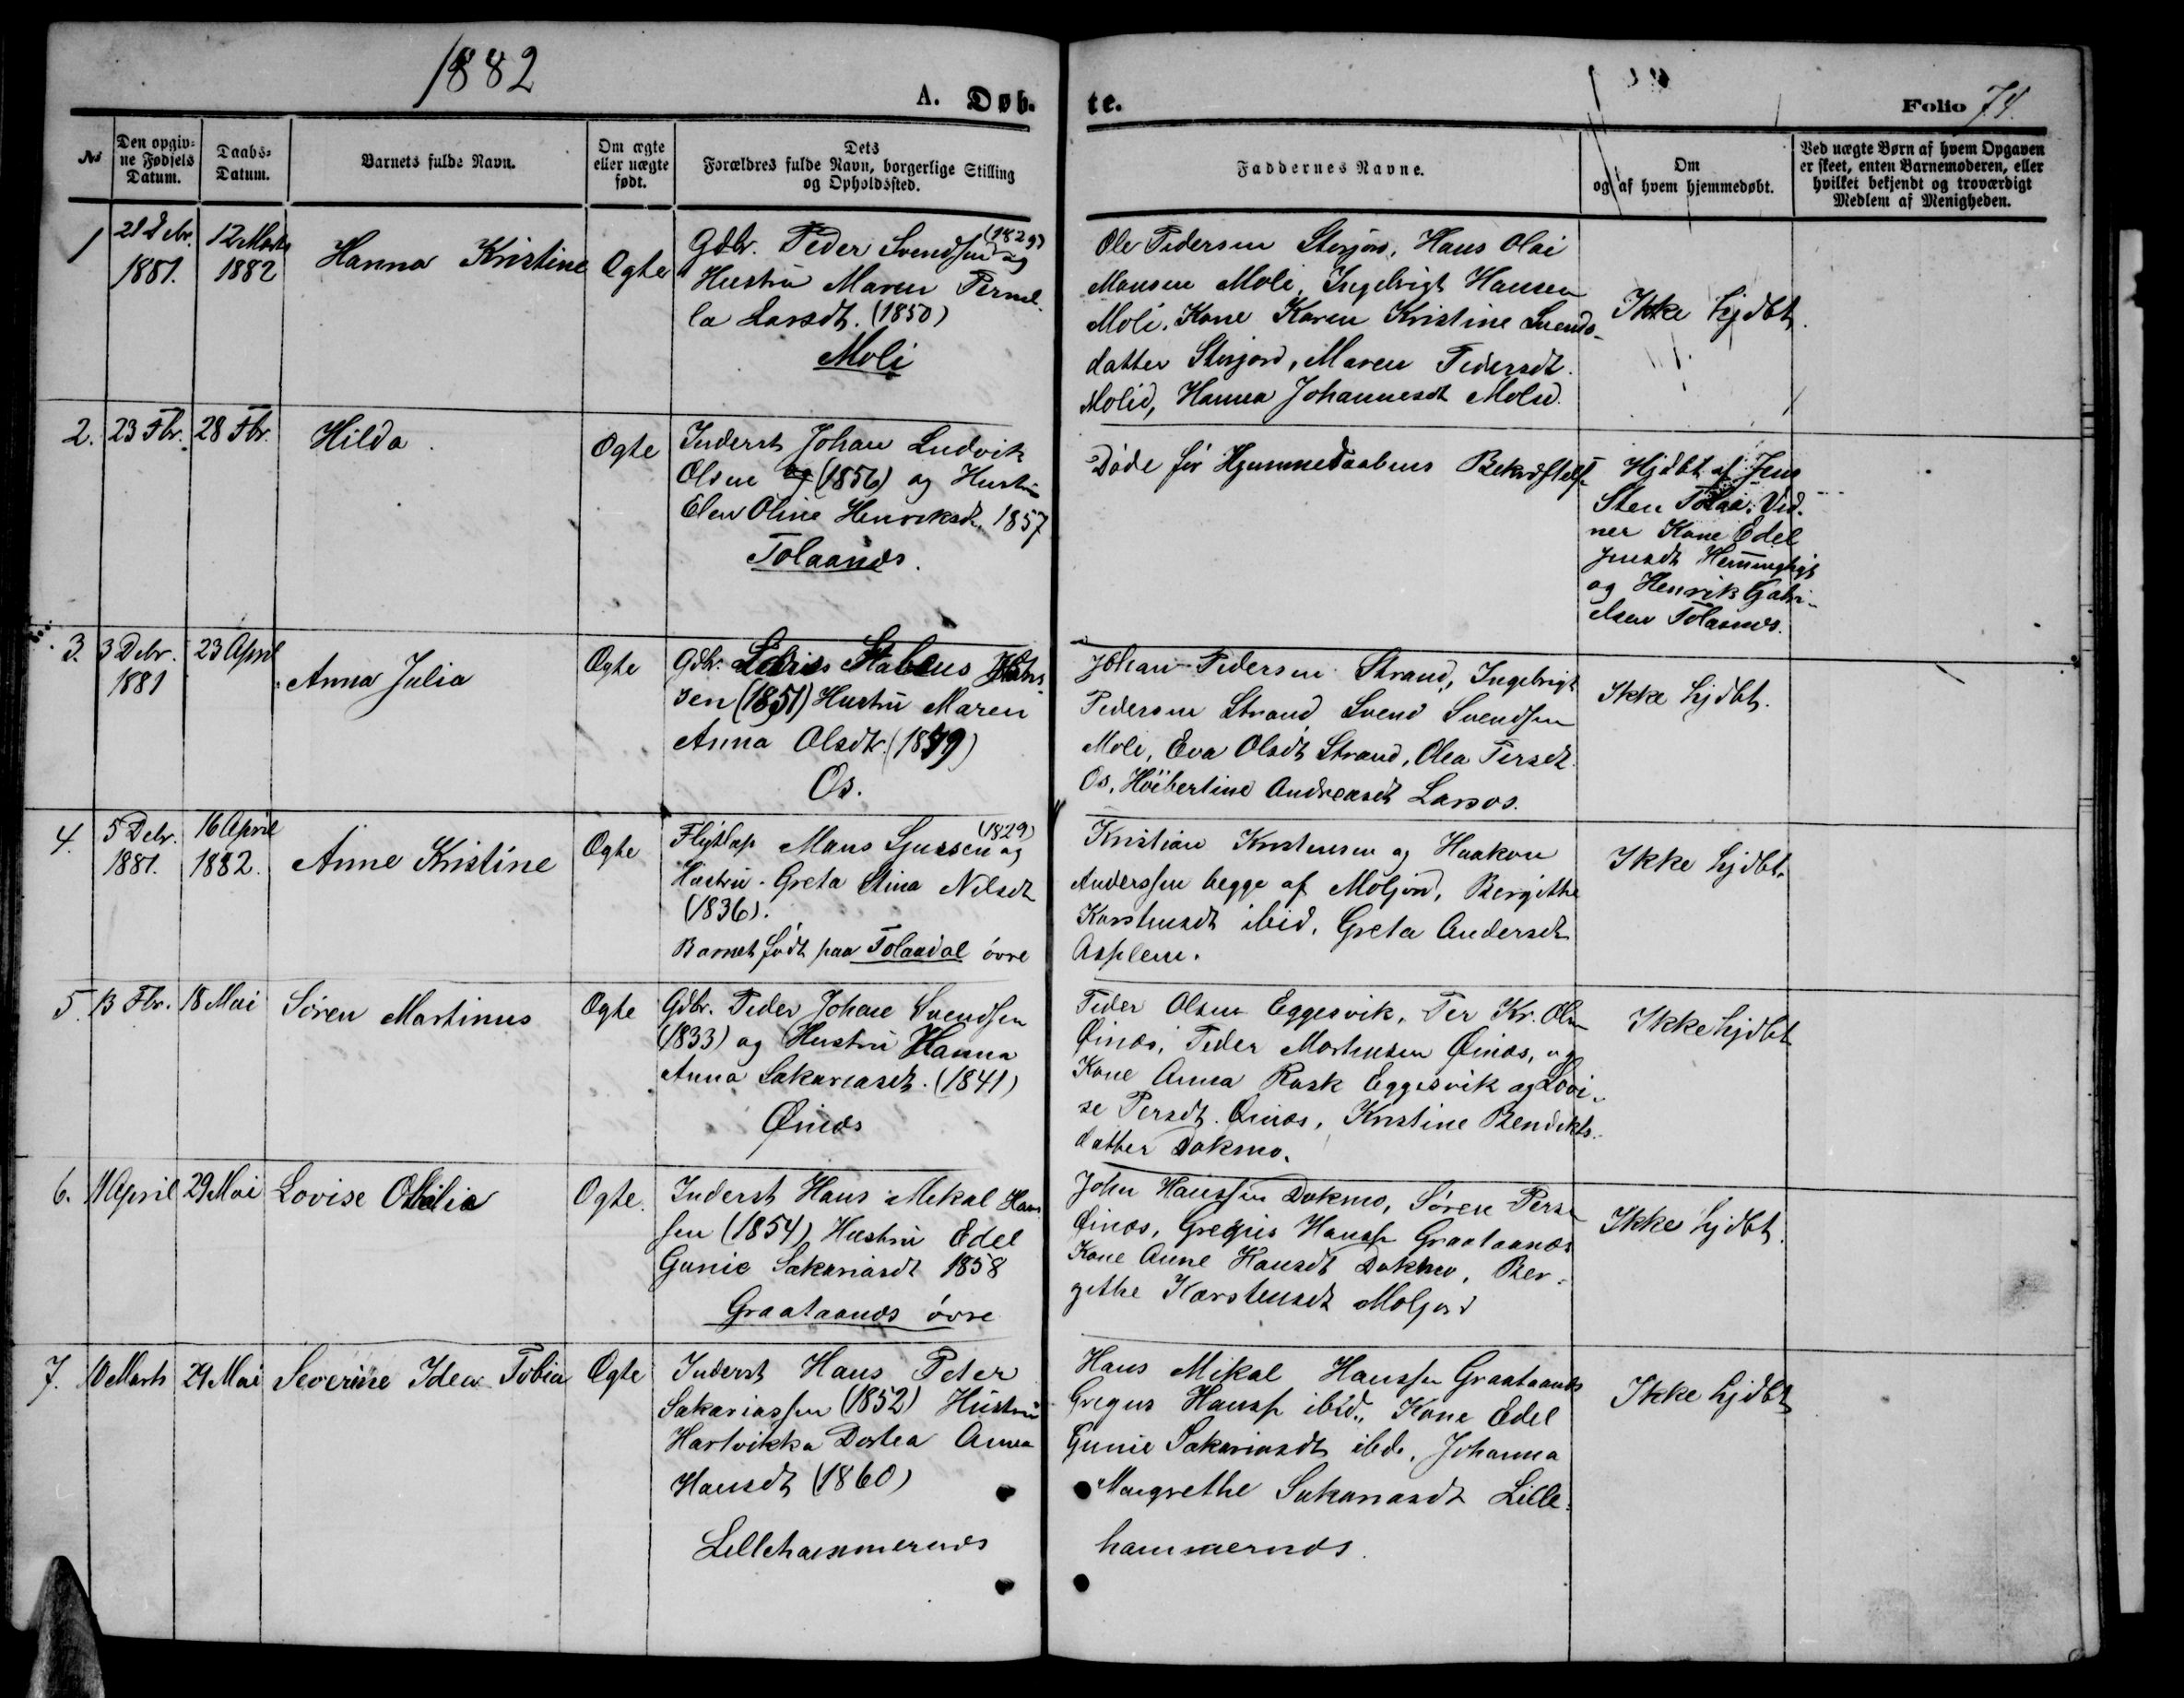 1882
A. Døb-
te.
Folio 74.
No
Den opgiv-
ne Fødsels
Datum.
Daabs-
Datum.
Barnets fulde Navn.
Om ægte
eller uægte
født.
Dets
Forældres fulde Navn, borgerlige Stilling
og Opholdssted.
Faddernes Navne.
Om
og af hvem hjemmedøbt.
Ved uægte Børn af hvem Opgaven
er skeet, enten Barnemoderen, eller
hvilket bekjendt og troværdigt
Medlem af Menigheden.
1
21 Debr.
1881.
12 Marts
1882
Hanna Kristine
Ægte
Gdbr. Peder Svendsen (1829) og
Hustru Maren Pernel-
la Larsdt. (1850)
Moli
Ole Pedersen Storjord, Hans Olai
Monsen Moli, Ingebrigt Hansen
Moli, Kone Karen Kristine Svends-
datter Storjord, Maren Pedersdt.
Molid, Hanna Johannesdt Molid.
Ikke hjdbt.
2.
23 Fbr.
28 Fbr.
Hilda.
Ægte
Inderst Johan Ludvik
Olsen (1856) og Hustru
Elen Oline Henriksdt. 1857
Tolaanæs.
Døde før Hjemmedaabens Bekræftelse
Hjdbt af Jens
Sten Tolaa. Vid-
ner Kone Edel
Jensdt
og Henrik Gabri-
elsen Tolaanæs.
3.
3 Debr.
1881
23 April
Anna Julia
Ægte
Gdbr.
sen (1851) Hustru Maren
Anna Olsdtr. (1859)
Os.
Johan Pedersen Strand, Ingebrigt
Pedersen Strand, Svend Svendsen
Moli, Eva Olsdt Strand, Olea Persdt.
Os, Höibertine Andreasdt Larsos.
Ikke hjdbt.
4.
5 Debr.
1881.
16 April
1882.
Anne Kristine
Ægte
Flytlap Mans Sjursen (1829) og
Hustru Greta Stina Nilsdt
(1836).
Barnet født paa Tolaadal øvre
Kristian Kristensen og Haakon
Anderssen begge af Moljord, Bergithe
Karstensdt ibid, Greta Andersdt
Asplem.
Ikke hjdbt.
5.
13 Fbr.
18 Mai
Søren Martinus
Ægte
Gdbr. Peder Johan Svendsen
(1833) og Hustru Hanna
Anna Sakariasdt. (1841)
Øinæs
Peder Olsen Eggesvik, Per Kr. Olsen
Øinæs, Peder Mortensen Øinæs, og
Kone Anna Rask Eggesvik og Lovi-
se Persdt. Øinæs, Kristine Bendikts-
datter Dokmo.
Ikke hjdbt
6.
11 April
29 Mai
Lovise Otalia
Ægte.
Inderst Hans Mikal Hans-
sen (1854) Hustru Edel
Gunie Sakariasdt 1858
Graataanæs øvre
John Hanssen Dokmo, Søren Perse
Øinæs, Gregus Hanss. Graataanæs
Kone Anne Hansdt Dokmo, Ber-
githe Karstensdt Moljord
Ikke hjdbt.
7.
10 Marts
29 Mai
Severine Idea Tobia
Ægte
Inderst Hans Peter
Sakariassen (1852) Hustru
Hartvikka Dortea Anna
Hansdt (1860)
Lillehammernæs
Hans Mikal Hanssen Graataanæs
Gregus Hanss. ibid., Kone Edel
Gunie Sakariasdt ibd., Johanna
Margrethe Sakariasdt Lille-
hammernæs.
Ikke hjdbt